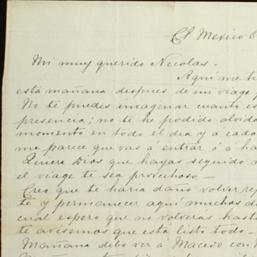 El Mexico
Mi muy querido Nicolas.
Aqui me t
esta mañana despues de un viage
No te puedes imaginar cuanto es
presencia; no te he podido olvida
momento en todo el dia y a cada
me parece que vas á entrar ó a ha
Quiera Dios que hayas seguido a
el viage te sea provechoso—
Creo que te haria daño volver rep
te y permanecer aqui muchos d
cual espero que no volveras hast
te avisemos que esta listo todo—
Mañana debo ver á Macedo con